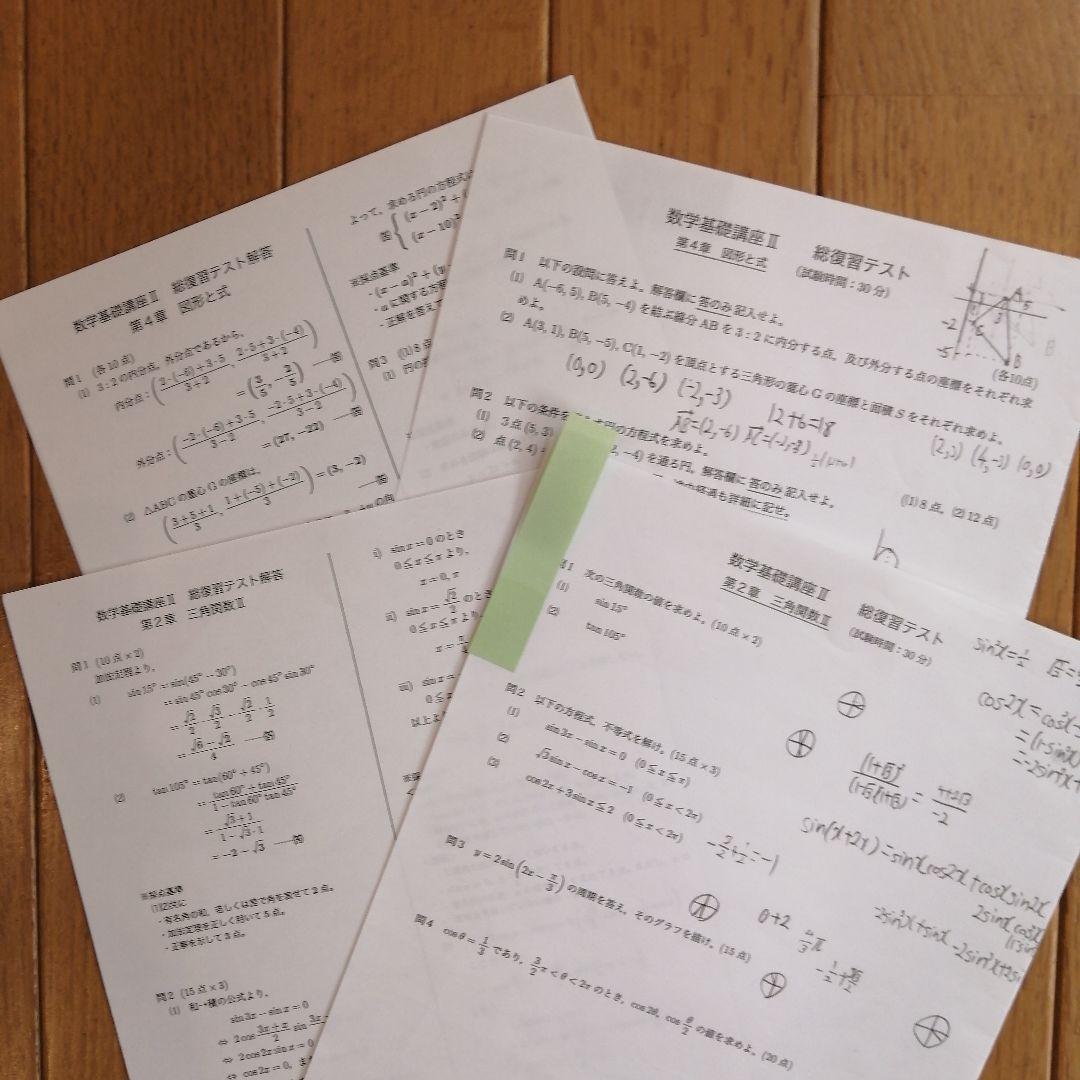 数学基礎講座Ⅱ 総復習テスト解答
第4章 図形と式
問1 (各10点)
(1) 3:2の内分点、外分点であるから、
内分点:(2·(-6)+3·5/3+2, 2·5+3·(-4)/3+2)
=(3/5, -2/5) ——答
外分点:(-2·(-6)+3·5/3-2, -2·5+3·(-4)/3-2)
=(27, -22) ——答
(2) △ABCの重心Gの座標は、
(3+5+1/3, 1+(-5)+(-2)/3)=(3, -2)
——答
よって、求める円の方程式は
答{(x-2)²+(
(x-10)²
※採点基準
・(x-a)²+(y
・aに関する方程
・正解を答えて
問3 (1)8点
(1) 円の
数学基礎講座Ⅱ 総復習テスト
第4章 図形と式 (試験時間:30分)
問1 以下の設問に答えよ。解答欄に答のみ記入せよ。
(1) A(-6, 5), B(5, -4)を結ぶ線分ABを3:2に内分する点、及び外分する点の座標をそれぞれ求
めよ。 (各10点)
(2) A(3, 1), B(5, -5), C(1, -2)を頂点とする三角形の重心Gの座標と面積Sをそれぞれ求めよ。
(0,0) (2,-6) (-2,-3) 12+6=18
問2 以下の条件を
円の方程式を求めよ。
(1) 3点(5, 3)
(2) 点(2, 4)
2, -4)を通る円。解答欄に答のみ記入せよ。
も詳細に記せ。
((1)8点、(2)12点)
-2
-5
3
5
B
数学基礎講座Ⅱ 総復習テスト解答
第2章 三角関数Ⅱ
問1 (10点×2)
加法定理より、
(1) sin15°=sin(45°-30°)
=sin45°cos30°-cos45°sin30°
=√2/2·√3/2-√2/2·1/2
=√6-√2/4 ——答
(2) tan105°=tan(60°+45°)
=tan60°+tan45°/1-tan60°tan45°
=√3+1/1-√3·1
=-2-√3 ——答
※採点基準
(1)(2)共に
・有名角の和、若しくは差で角を表せて2点。
・加法定理を正しく用いて5点。
・正解を示して3点。
問2 (15点×3)
(1) 和→積の公式より、
sin3x-sinx=0
⇔ 2cos 3x+x/2 sin 3x-
⇔ 2cos2xsinx=0
⇔ cos2x=0, ま
i) sinx=0のとき
0≦x≦πより、
x=0, π
ii) sinx=√2/2のとき
0≦x≦πより、
iii) sinx=
以上よ
数学基礎講座Ⅱ 総復習テスト
第2章 三角関数Ⅱ (試験時間:30分)
問1 次の三角関数の値を求めよ。(10点×2)
(1) sin15°
(2) tan105°
問2 以下の方程式、不等式を解け。(15点×3)
(1) sin3x-sinx=0 (0≦x≦π)
(2) √3sinx-cosx=-1 (0≦x<2π)
(3) cos2x+3sinx≦2 (0≦x<2π)
問3 y=2sin(2x-π/3)の周期を答え、そのグラフを描け。(15点)
問4 cosθ=1/3であり、3/2π<θ<2πのとき、cos2θ, cosθ/2の値を求めよ。(20点)
sin²x=½
cos2x=cos²x-
=(1-sin²x)
=-2sin²x+
(1+√3)²/(1-√3)(1+√3)=4+2√3/-2
sin(x+2x)=sinxcos2x+cosxsin2x
2sinxcosx
-2sin³x+sinx-2sin³x+2sin
0+2
4/3π